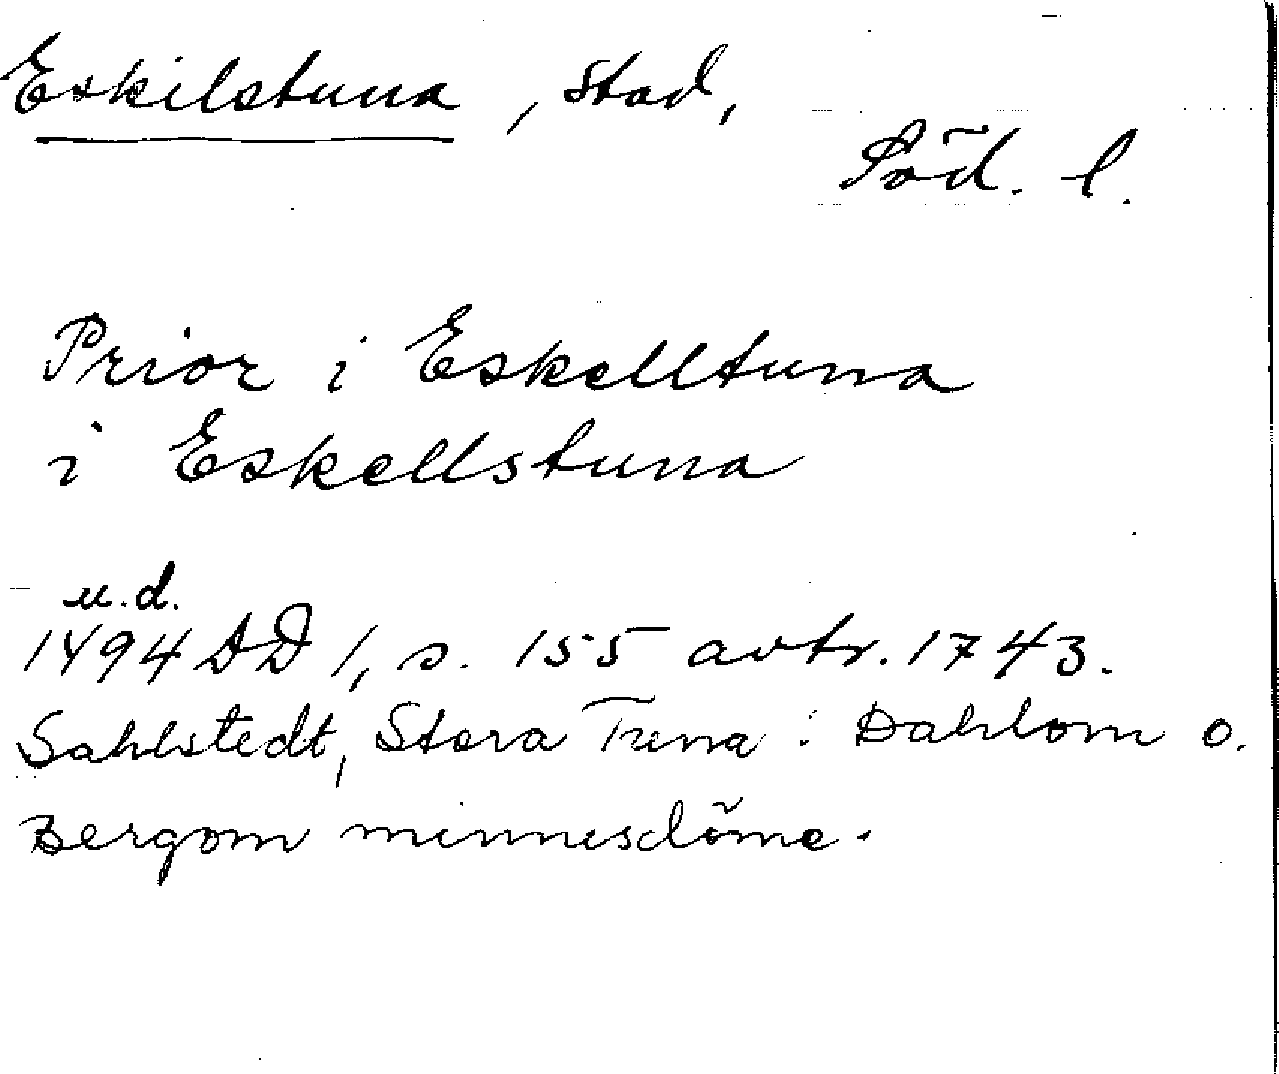 Eskilstuna, stad,
Söd. l.
Prior i Eskelltuna
i Eskellstuna
u.d.
1494 DD 1, s. 155 avtr. 1743.
Sahlstedt, Stora Tuna : Dahlom o.
Bergom minnesdöme.